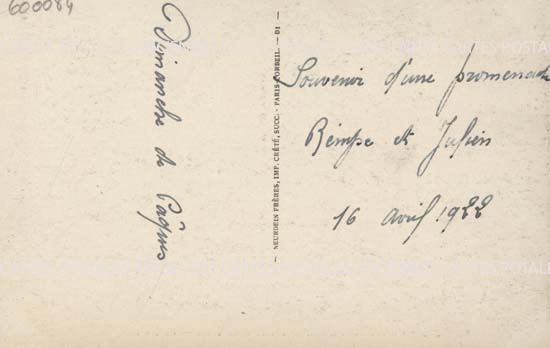 600084
Dimanche de Pâques
— NEURDEIN FRÈRES, IMP. CRÉTÉ, SUCC. - PARIS-CORBEIL. — D1 —
Souvenir d'une promenade
et Julien
16 avril 1922